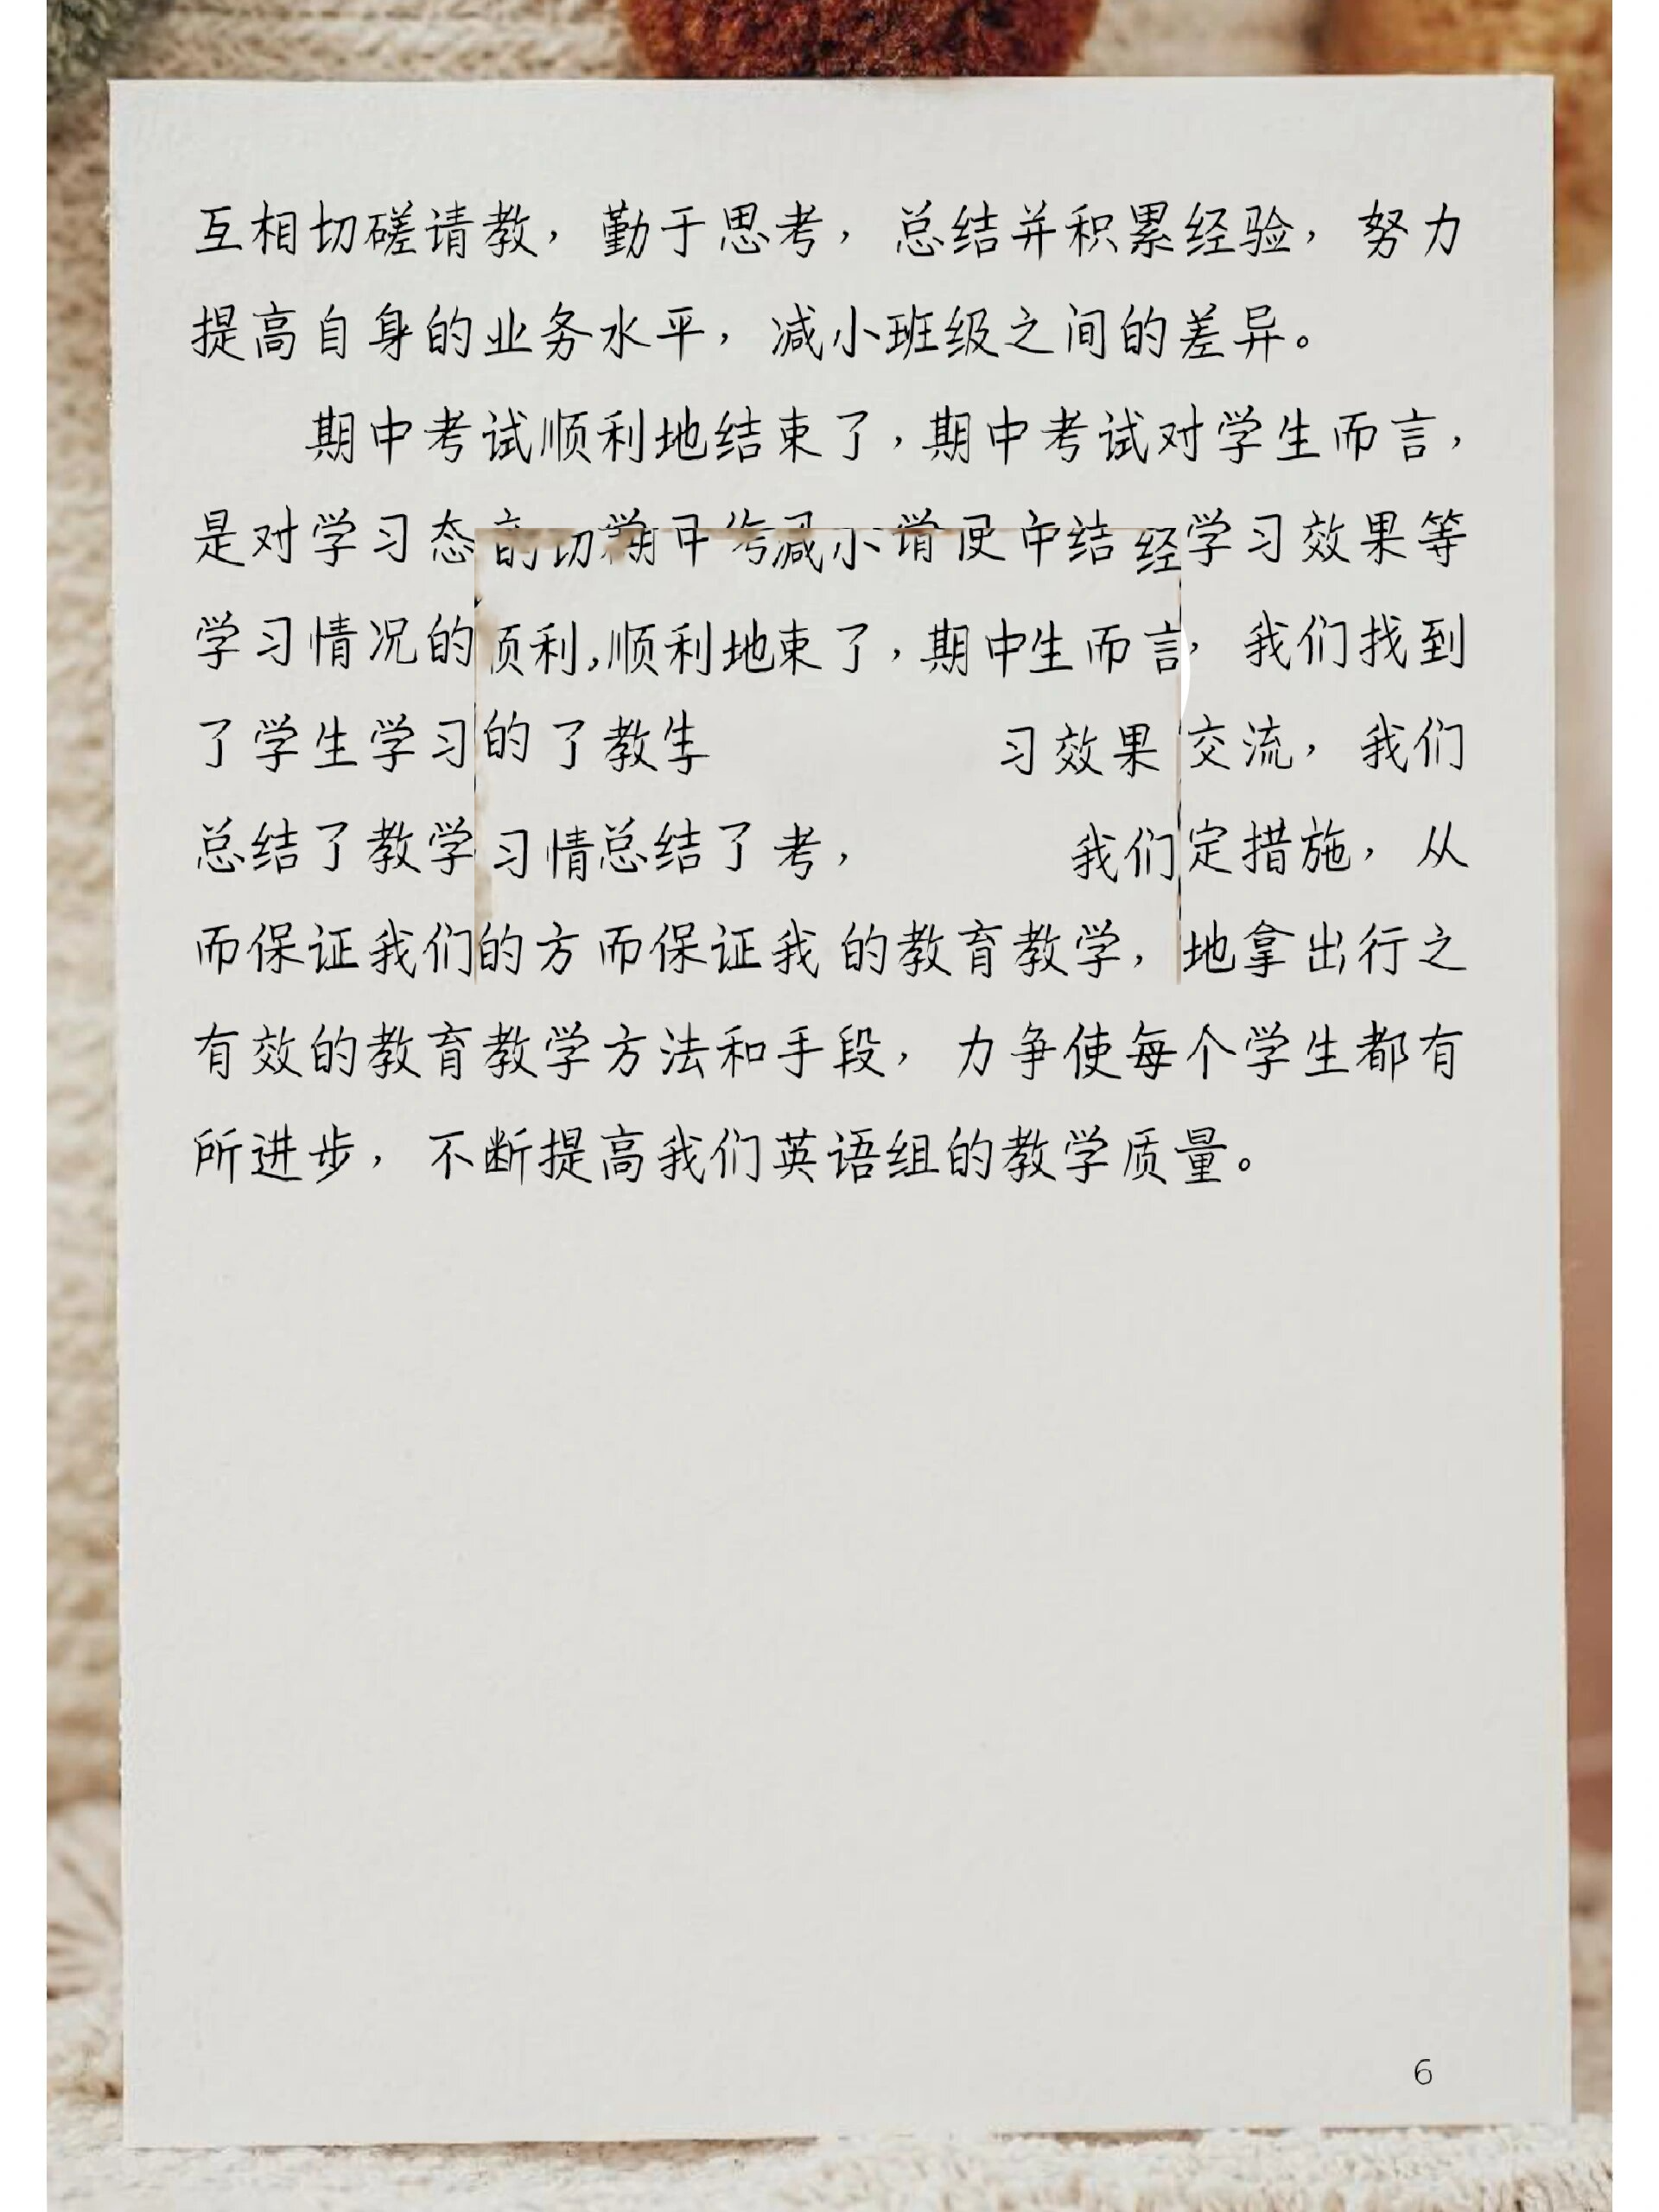 互相切磋请教，勤于思考，总结并积累经验，努力
提高自身的业务水平，减小班级之间的差异。
期中考试顺利地结束了，期中考试对学生而言，
是对学习态 减小 中结 经学习效果等
学习情况的 利，顺利地束了，期中生而言，我们找到
了学生学习的了教 习效果交流，我们
总结了教学习情总结了考， 我们定措施，从
而保证我们的方而保证我的教育教学，地拿出行之
有效的教育教学方法和手段，力争使每个学生都有
所进步，不断提高我们英语组的教学质量。
6